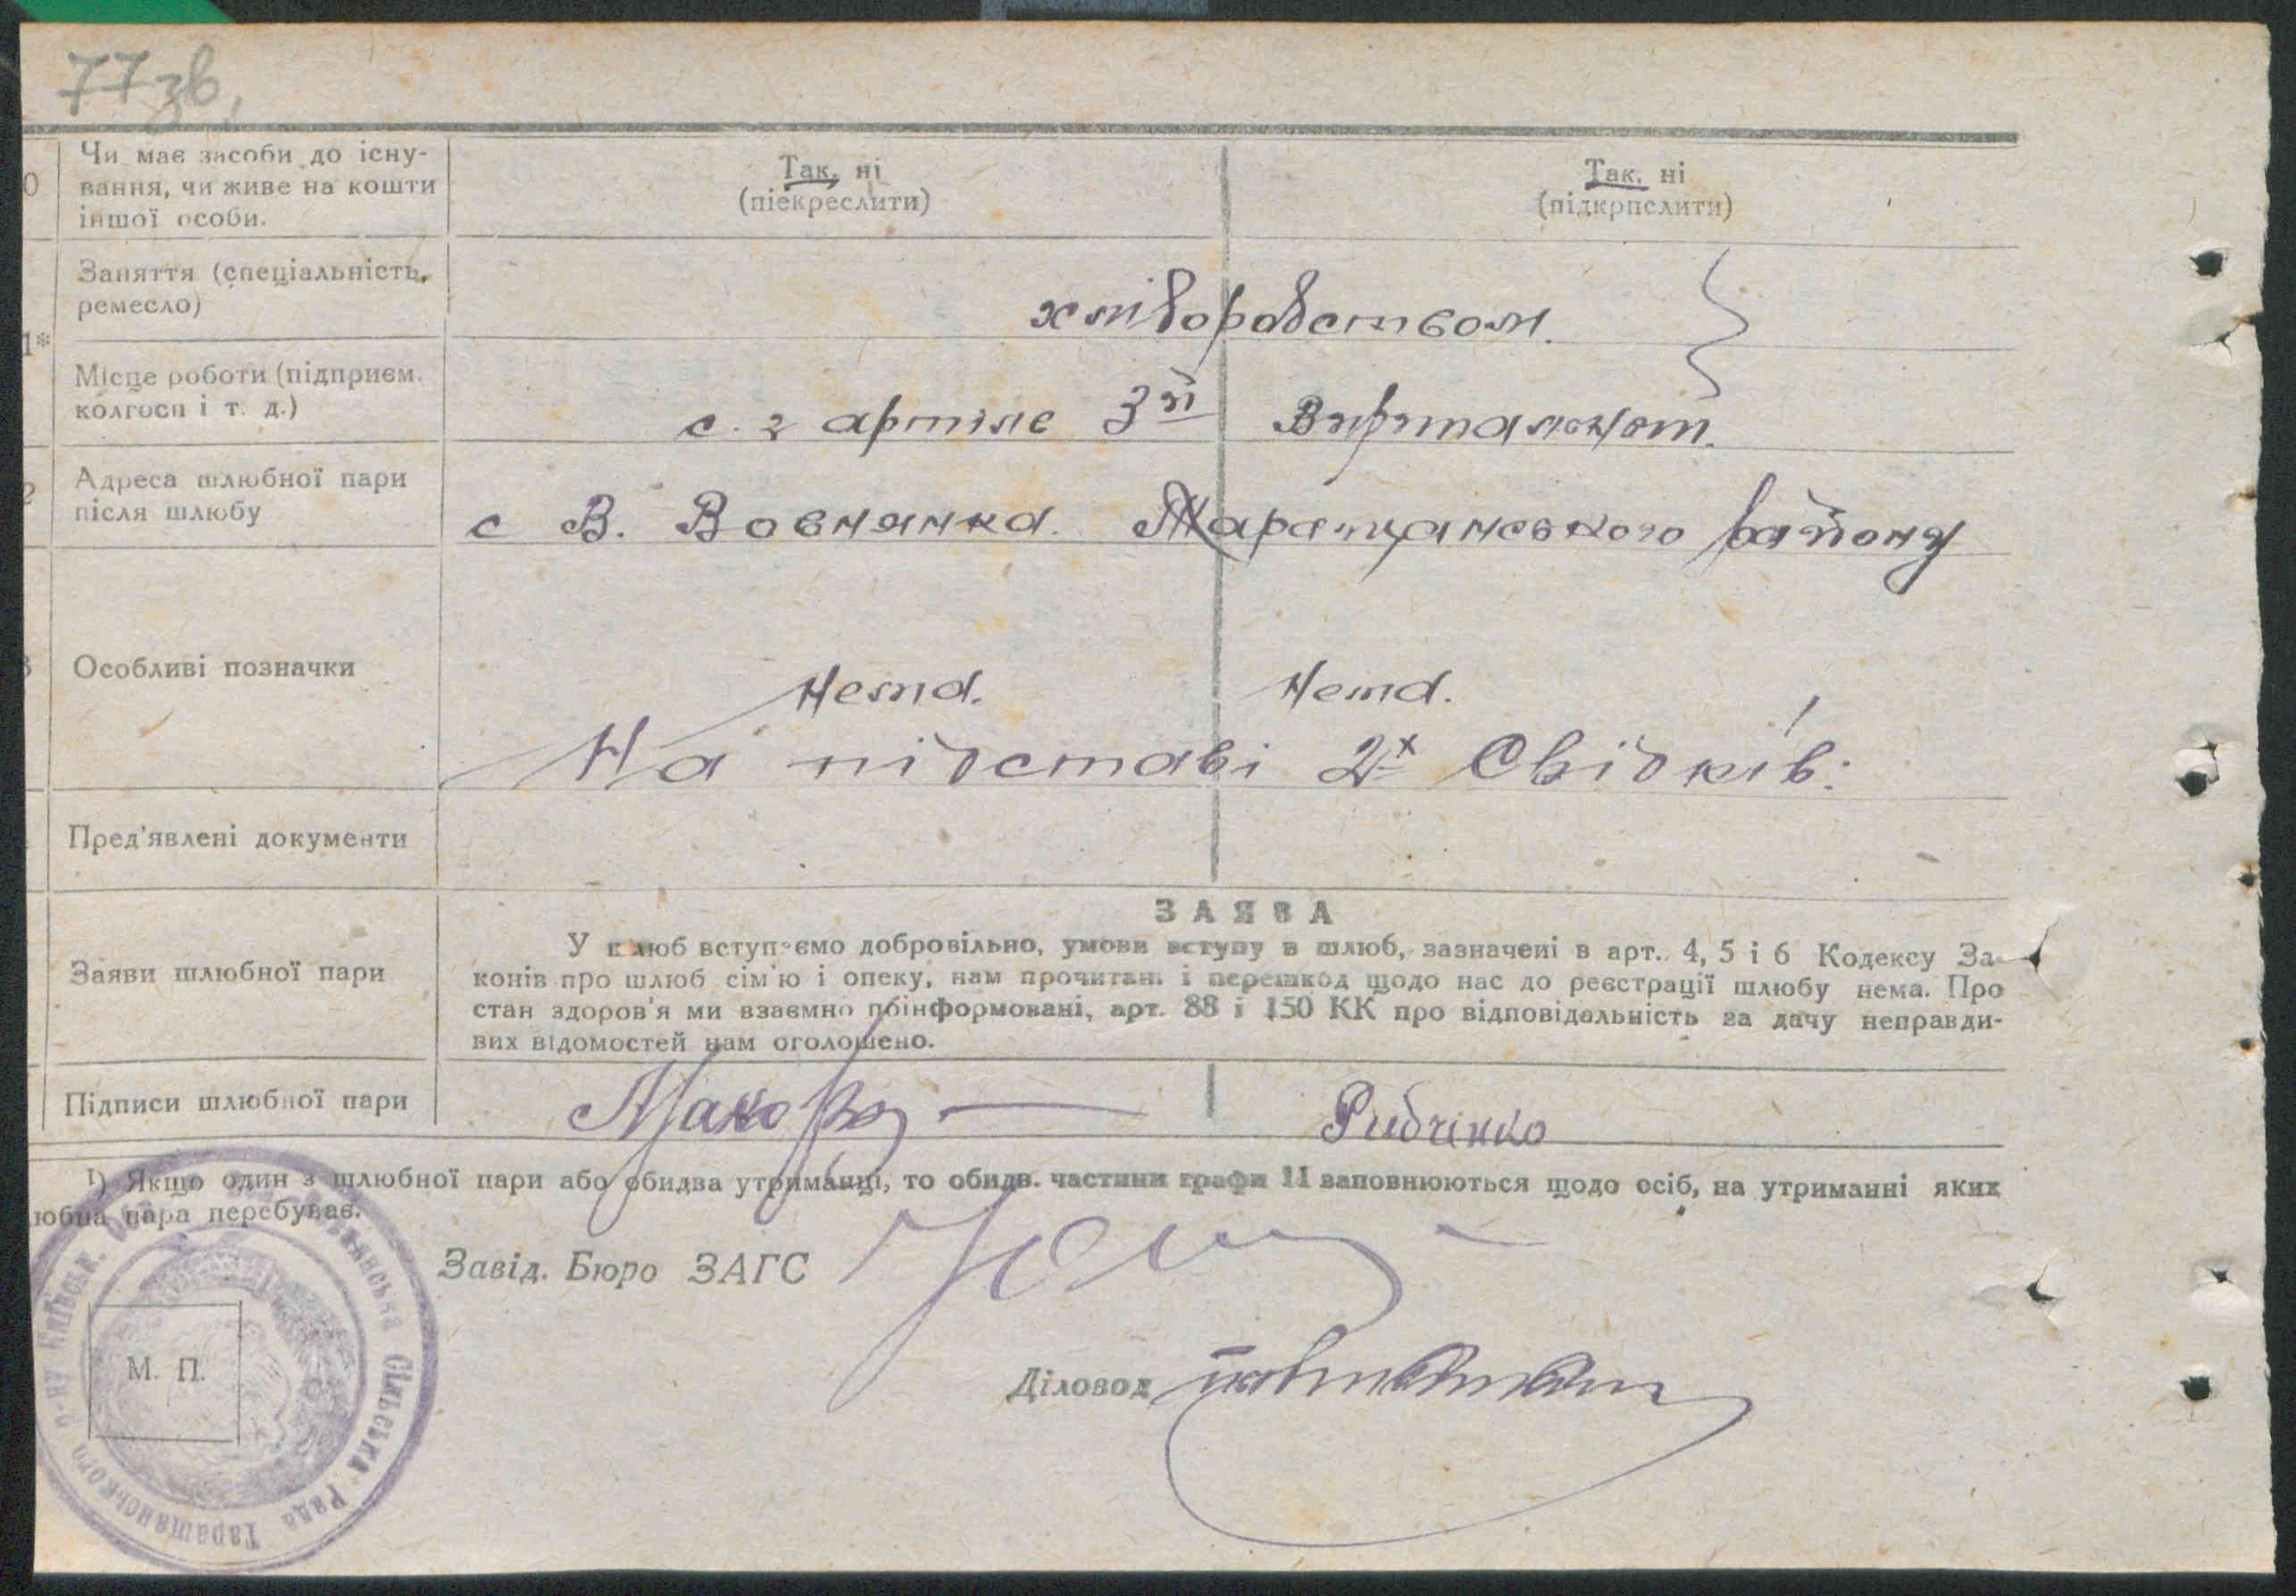 77зв.
0
Чи має засоби до існу-
вання, чи живе на кошти
іншої особи.
Так, ні
(піекреслити)
Так, ні
(підкрпслити)
1*
Заняття (спеціальність,
ремесло)
хліборобством.
Місце роботи (підприєм.
колгосп і т. д.)
с. г артіле 3й Вирішальний
2
Адреса шлюбної пари
після шлюбу
с В. Вовнянка. Таращанського району
3
Особливі позначки
Нема. Нема.
На підставі 2х Свідків.
Пред'явлені документи
Заяви шлюбної пари
ЗАЯВА
У шлюб вступаємо добровільно, умови вступу в шлюб, зазначені в арт. 4, 5 і 6 Кодексу За-
конів про шлюб сім'ю і опеку, нам прочитані і перешкод щодо нас до реєстрації шлюбу нема. Про
стан здоров'я ми взаємно поінформовані, арт. 88 і 150 КК про відповідальність за дачу неправди-
вих відомостей нам оголошено.
Підписи шлюбної пари
Рибчінко
1) Якщо один з шлюбної пари або обидва утриманці, то обидв. частини графи 11 заповнюються щодо осіб, на утриманні яких
любна пара перебуває.
Завід. Бюро ЗАГС
Діловод
М. П.
Сільська Рада Таращанського р-ну Київськ.